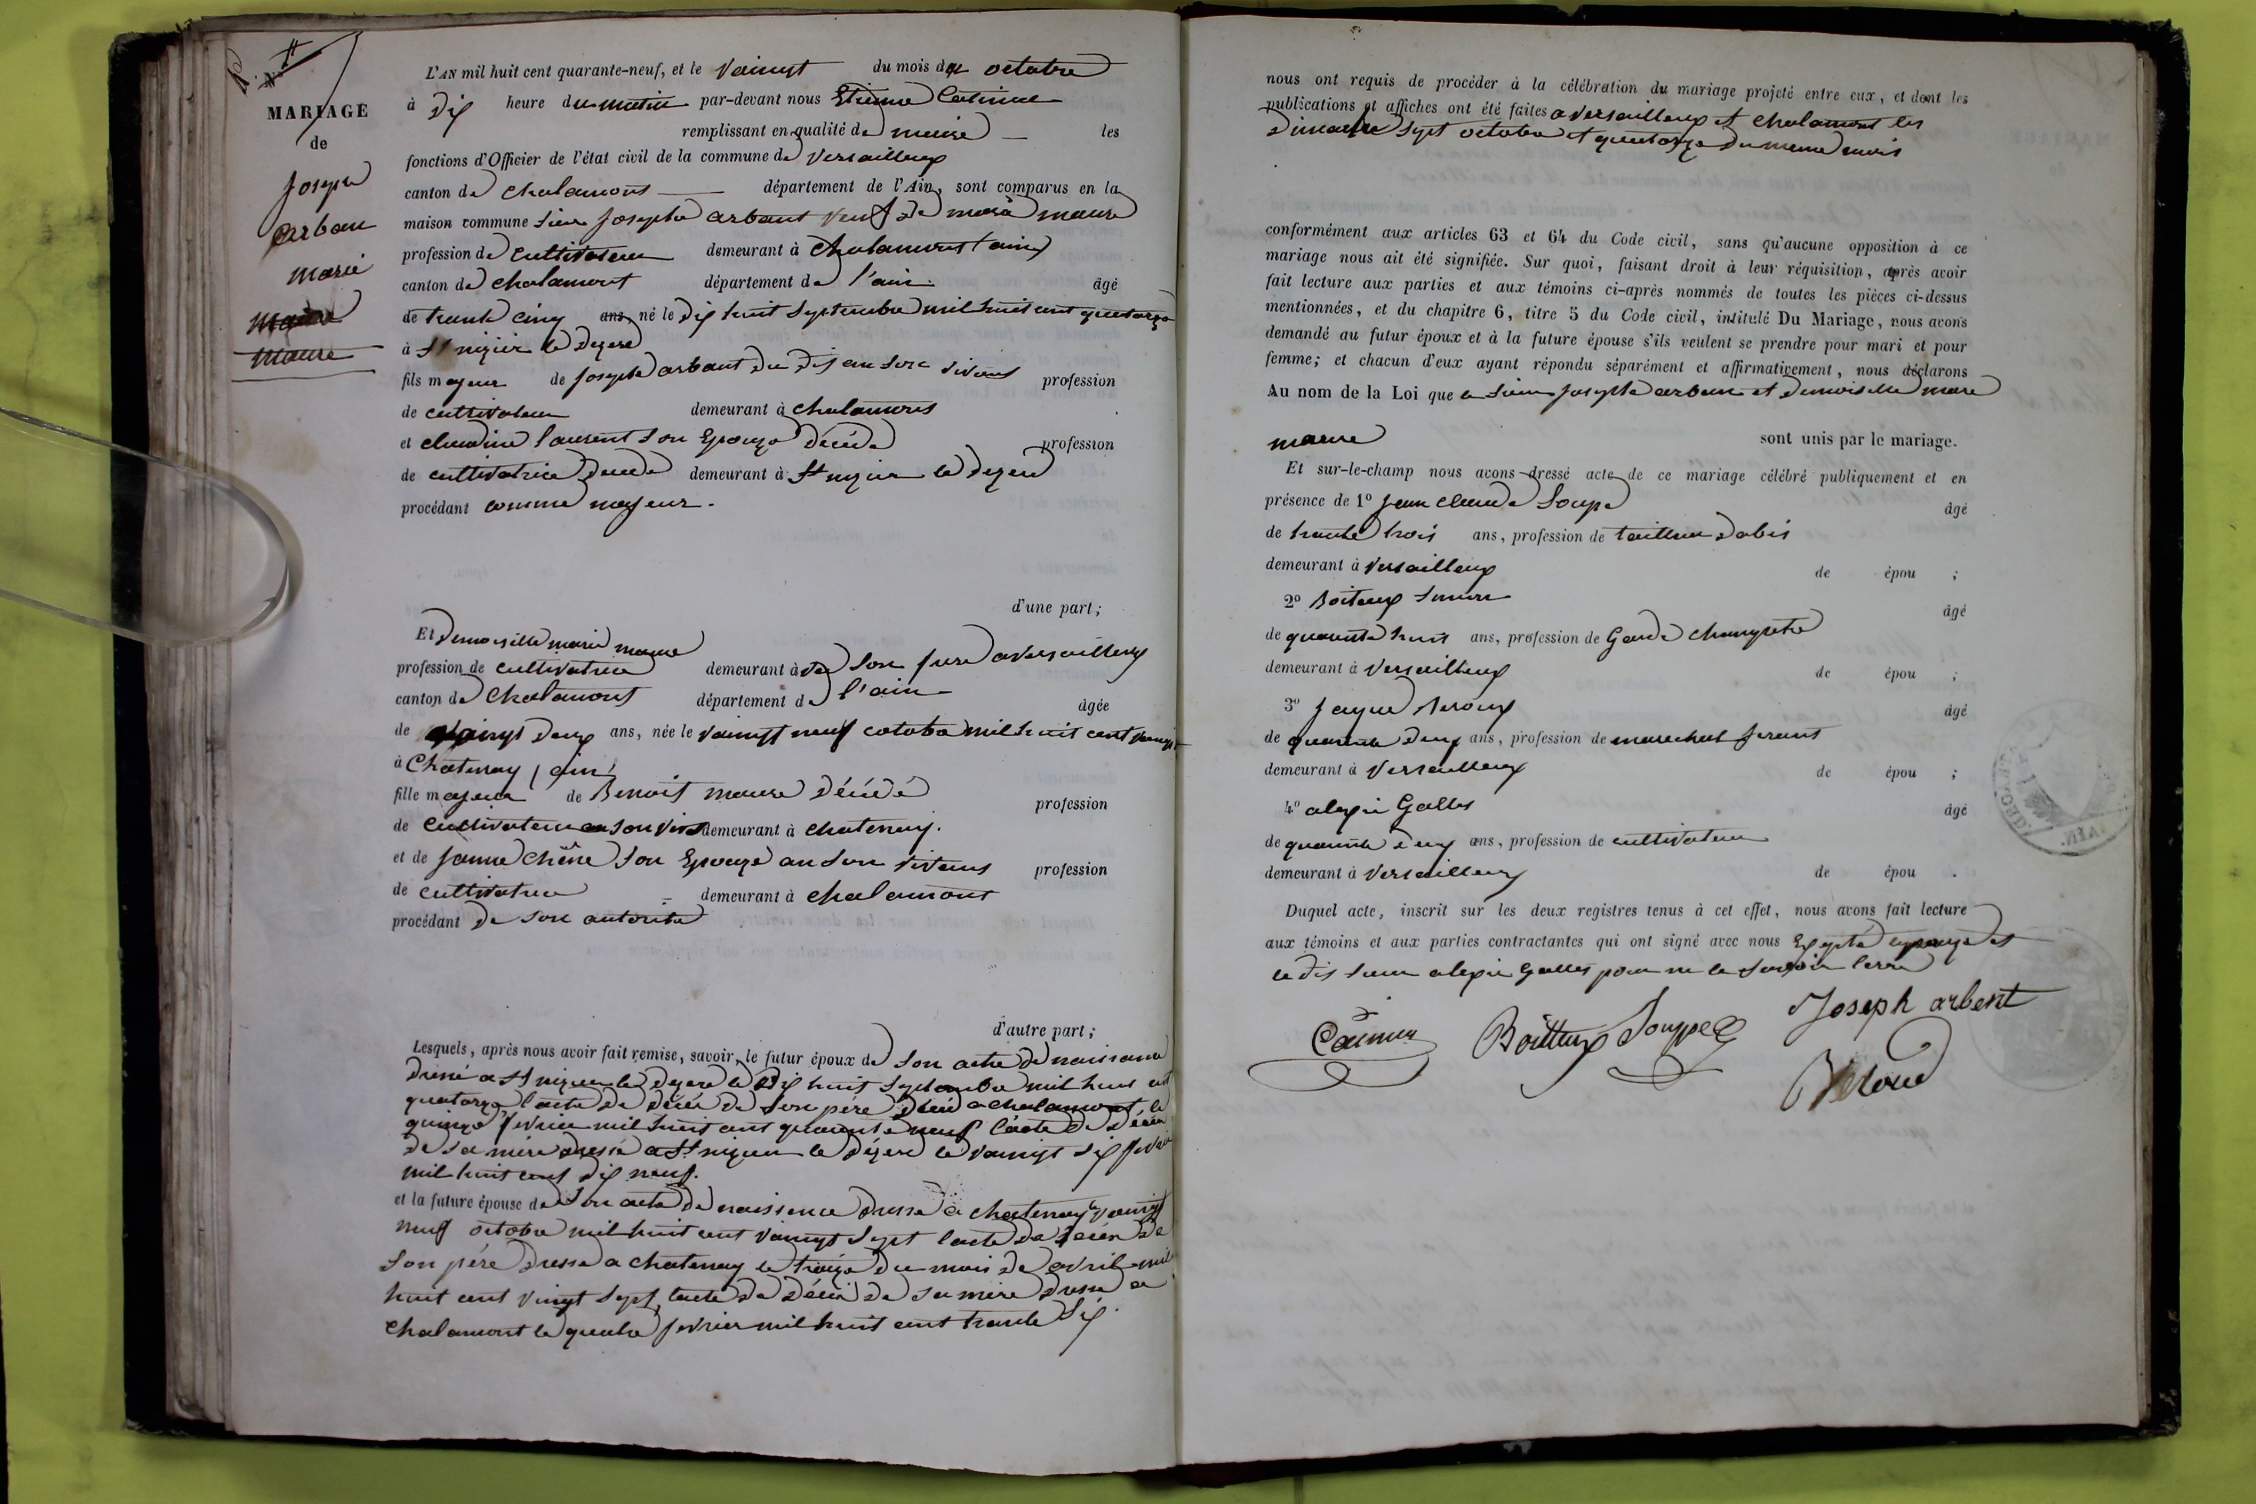 N° 11
MARIAGE
de
Joseph
arban
marie
maure
L'AN mil huit cent quarante-neuf, et le vainngt du mois de octobre
à dix heure du matin par-devant nous Etienne
remplissant en qualité de maire les
fonctions d'Officier de l'état civil de la commune de Versailleux
canton de chalamont département de l'Ain, sont comparus en la
maison commune sieur Josephe arbant
profession de cultivateur demeurant à chalamont ain
canton de chalamont département de l'ain. âgé
de trante cinq ans, né le dix huit septembre mil huit cent quatorze
à St nizier le dezere
fils mayeur de Josephe arbant du dis an son vivans profession
de cultivateur demeurant à chalamont
et claudine laurent son Epouze décédé profession
de cultivatrice demeurant à St nizier le dezere
procédant comme mayeur.
d'une part;
Et demoiselle marie maure
profession de cultivatrice demeurant à aversailleux
canton de chalamont département de l'ain
âgée
de vaingt deux ans, née le vainngt neuf octobre mil huit cent vaingt
à Chatenay (ain)
fille mayeur de Benoit maure décédé profession
de cultivateur an son vivan demeurant à chatenay.
et de Janne chêne son Epouze an son vivans profession
de cultivatrice demeurant à chalamont
procédant de son autorité
d'autre part;
Lesquels, après nous avoir fait remise, savoir, le futur époux de son acte de naissance
dressé a St nizier le dezere le dix huit septembre mil huit cent
quatorze lacte de décés de son pére décéd a chalamont le
quinze fevrier mil huit cent quarante neuf l'acte de décés
de sa mére dressé a St nizier le dézere le vainngt six fevrier
mil huit cent dix neuf.
et la future épouse de son acte de naissence dressé a chatenay le vaingt
neuf octobre mil huit cent vaingt sept lacte de décés de
son pére dressé a chatenay le traize du mois de avril mil
huit cent vingt sept, lacte de décés de sa mére dressé a
chalamont le quatre fevrier mil huit cent trante six.
nous ont requis de procéder à la célébration du mariage projeté entre eux, et dont les
publications et affiches ont été faites a versailleux et chalamont les
dimanche sept octobre et quatorze du meme mois
conformément aux articles 63 et 64 du Code civil, sans qu'aucune opposition à ce
mariage nous ait été signifiée. Sur quoi, faisant droit à leur réquisition, après avoir
fait lecture aux parties et aux témoins ci-après nommés de toutes les pièces ci-dessus
mentionnées, et du chapitre 6, titre 5 du Code civil, intitulé Du Mariage, nous avons
demandé au futur époux et à la future épouse s'ils veulent se prendre pour mari et pour
femme; et chacun d'eux ayant répondu séparément et affirmativement, nous déclarons
Au nom de la Loi que le sieur Josephe arban et demoiselle marie
maure sont unis par le mariage.
Et sur-le-champ nous avons dressé acte de ce mariage célébré publiquement et en
présence de 1° Jean claude Soupe âgé
de trante trois ans, profession de tailleur dabis
demeurant à versailleux de épou ;
2° Boiteux Simon âgé
de quarante huit ans, profession de Garde champetre
demeurant à versailleux de épou ;
3° Jaque Veroux âgé
de quarante deux ans, profession de marechal ferant
demeurant à versailleux de épou ;
4° alexi Galles âgé
de quarante deux ans, profession de cultivateur
demeurant à versailleux de épou .
Duquel acte, inscrit sur les deux registres tenus à cet effet, nous avons fait lecture
aux témoins et aux parties contractantes qui ont signé avec nous Exepté
le dis sieur alexi Galles pour ne le savoir
Boitteux Souppe Joseph arbent